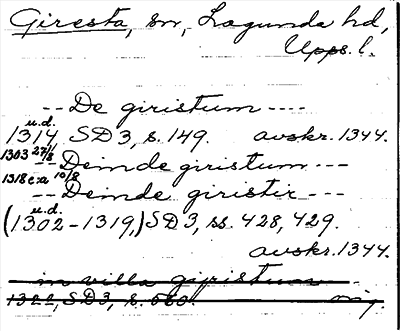 Giresta, sn, Lagunda hd,
Upps. l.
-- De giristum ----
u.d.
1314 SD 3, s. 149. avskr. 1344.
1303 27/8 -- Deinde giristum ---
1318 e.a 10/8
-- Deinde giristir ---
u.d.
(1302-1319,) SD 3, ss. 428, 429.
avskr. 1344.
in villa giristum
1322, SD3, s. 580. orig.